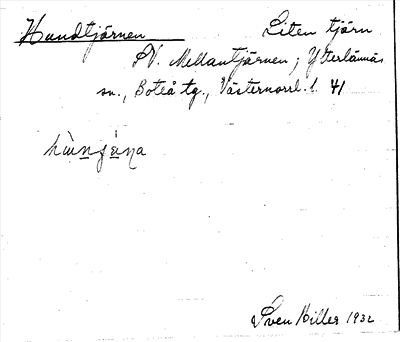 Hundtjärnen Liten tjärn
SV. Mellantjärnen; Ytterlännäs
sn., Boteå tg., Västernorrl. l. 41
Sven Hiller 1932